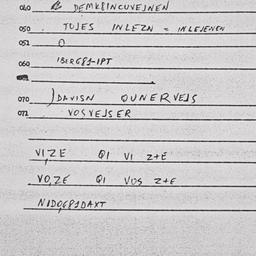 040 DEMKBINCUVEJNEN
050 TUJES INLEZN = INLEJENEN
052 0
060 IBERG8J-IPT
070 )DAVISN QUNERVEJS
072 VOSVEJSER
VIZE QI VI Z+E
VOZE QI VOS Z+E
NIDQE8JDAXT